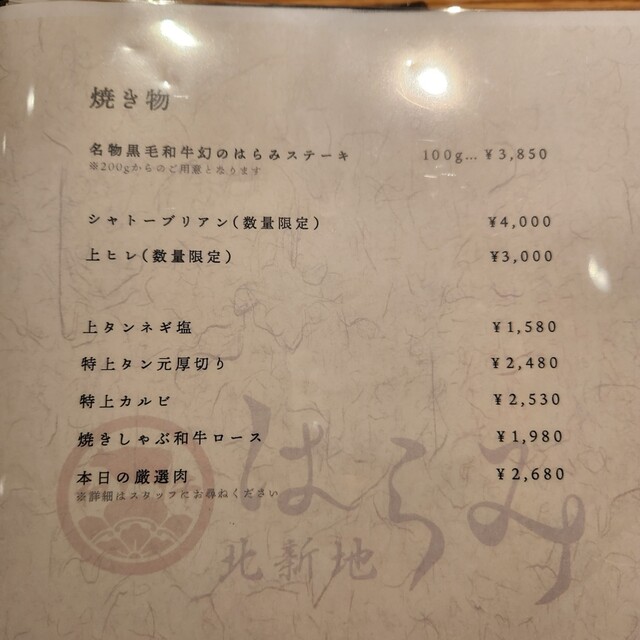 焼き物
名物黒毛和牛幻のはらみステーキ 100g… ¥3,850
※200gからのご用意となります
シャトーブリアン(数量限定) ¥4,000
上ヒレ(数量限定) ¥3,000
上タンネギ塩 ¥1,580
特上タン元厚切り ¥2,480
特上カルビ ¥2,530
焼きしゃぶ和牛ロース ¥1,980
本日の厳選肉 ¥2,680
※詳細はスタッフにお尋ねください
はらみ
北新地